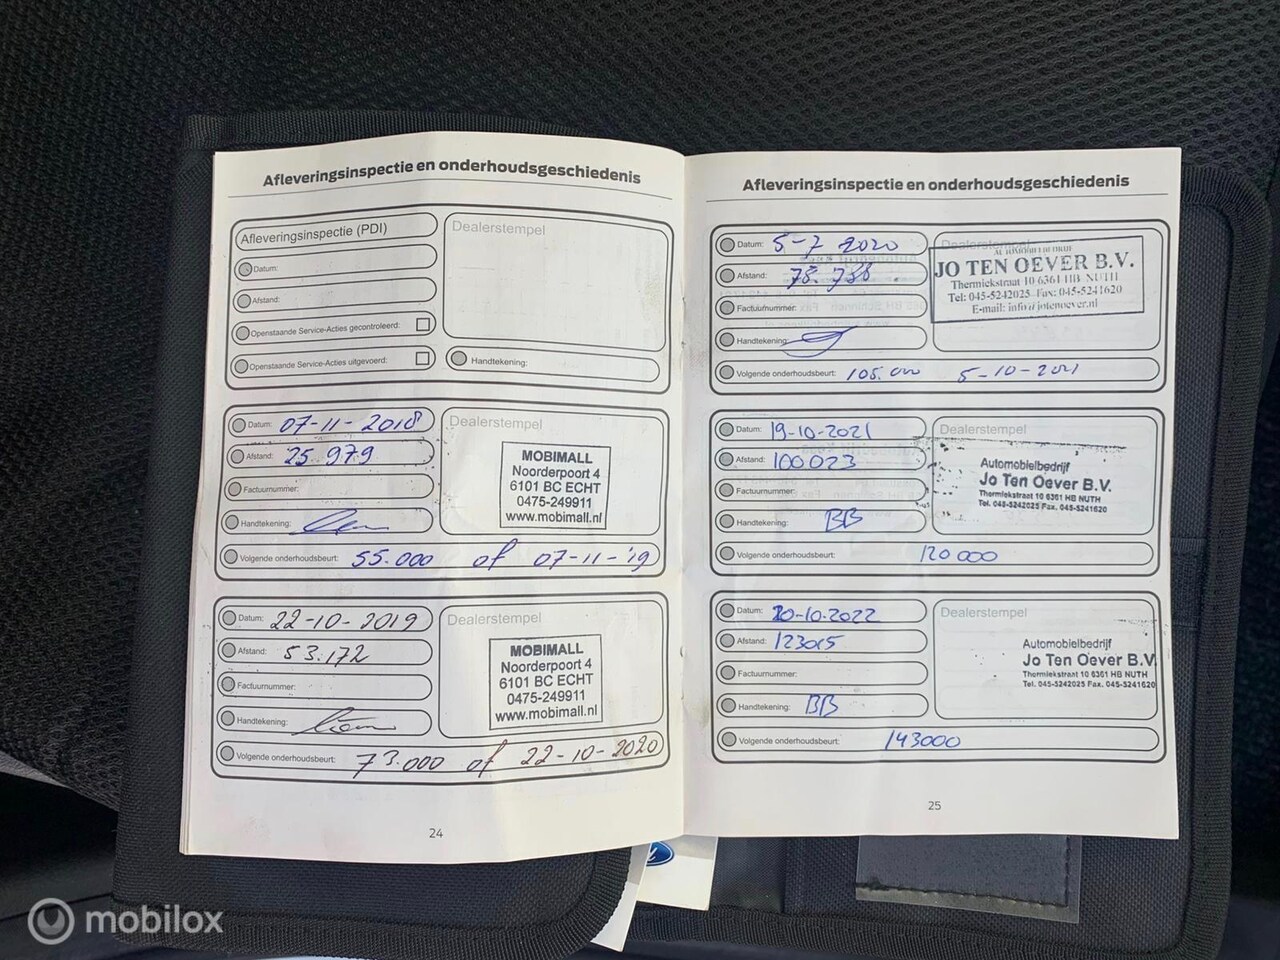 Afleveringsinspectie en onderhoudsgeschiedenis
Afleveringsinspectie (PDI)
Datum:
Afstand:
Openstaande Service-Acties gecontroleerd:
Openstaande Service-Acties uitgevoerd:
Dealerstempel
Handtekening:
Datum: 07-11-2018
Afstand: 25.979
Factuurnummer:
Handtekening:
Volgende onderhoudsbeurt: 55.000 of 07-11-'19
Dealerstempel
MOBIMALL
Noorderpoort 4
6101 BC ECHT
0475-249911
www.mobimall.nl
Datum: 22-10-2019
Afstand: 53.172
Factuurnummer:
Handtekening:
Volgende onderhoudsbeurt: 73.000 of 22-10-2020
Dealerstempel
MOBIMALL
Noorderpoort 4
6101 BC ECHT
0475-249911
www.mobimall.nl
24
Afleveringsinspectie en onderhoudsgeschiedenis
Datum: 5-7 2020
Afstand:
Factuurnummer:
Handtekening:
Volgende onderhoudsbeurt: 105.000 5-10-2021
Dealerstempel
JO TEN OEVER B.V.
Thermiekstraat 10 6361 HB NUTH
Tel: 045-5242025 Fax: 045-5241620
E-mail: info@jotenoever.nl
Datum: 19-10-2021
Afstand: 100023
Factuurnummer:
Handtekening: BB
Volgende onderhoudsbeurt: 120000
Dealerstempel
Automobielbedrijf
Jo Ten Oever B.V.
Thermiekstraat 10 6361 HB NUTH
Tel. 045-5242025 Fax. 045-5241620
Datum: 20-10-2022
Afstand: 123015
Factuurnummer:
Handtekening: BB
Volgende onderhoudsbeurt: 143000
Dealerstempel
Automobielbedrijf
Jo Ten Oever B.V.
Thermiekstraat 10 6361 HB NUTH
Tel. 045-5242025 Fax. 045-5241620
25
mobilox